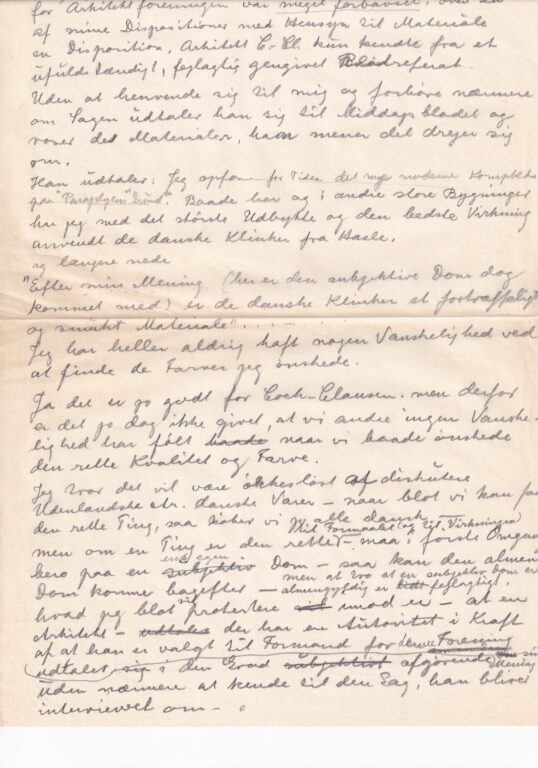 for Arkitektforeningen var meget forbavset over en
af mine Dispositioner med Hensyn til Materiale
en Disposition, Arkitekt C.-Cl. kun kendte fra et
ufuldstændigt, fejlagtig gengivet referat.
Uden at henvende sig til mig og forhøre nærmere
om Sagen udtaler han sig til Middagsbladet og
roser de Materialer, han mener det drejer sig
om.
Han udtaler: Jeg opfører for Tiden det nye moderne Kompleks
paa "Paraplyens Grund". Baade her og i andre store Bygninger
har jeg med det største Udbytte og den bedste Virkning
anvendt de danske Klinker fra Hasle.
og længere nede
"Efter min Mening (her er den subjektive Dom dog
kommet med) er de danske Klinker et fortræffeligt
og smukt Materiale"....
Jeg har heller aldrig haft nogen Vanskelighed ved
at finde de Farver jeg ønskede.
Ja det er jo godt for Coch-Clausen. men derfor
er det jo dog ikke givet, at vi andre ingen Vanske-
lighed har følt baade naar vi baade ønskede
den rette Kvalitet og Farve.
Jeg tror det vil være ørkesløst at diskutere
Udenlandske ctr. danske Varer - naar blot vi kan faa
den rette Ting, saa køber vi alle dansk
(til Formaalet og til Virkningen)
men om en Ting er den rette - maa i første Omgang
bero paa en subjektiv Dom - saa kan den almene
ens egen
Dom komme bagefter - men at tro at en subjektiv Dom er
almengyldig er fejlagtigt.
hvad jeg blot vil protestere imod er - at en
Arkitekt - udtaler der har en Autoritet i Kraft
af at han er valgt til Formand for denne Forening
udtaler sig i den Grad subjektivt afgørende sin Mening
uden nærmere at kende til den Sag, han bliver
interviewet om -